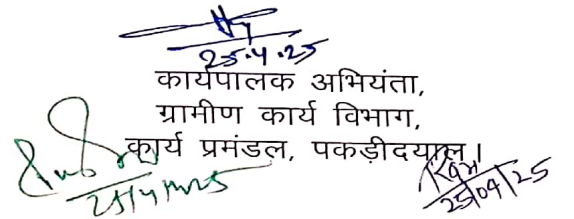 25.4.25
कार्यपालक अभियंता,
ग्रामीण कार्य विभाग,
कार्य प्रमंडल, पकड़ीदयाल।
25/4/2025
25/04/25